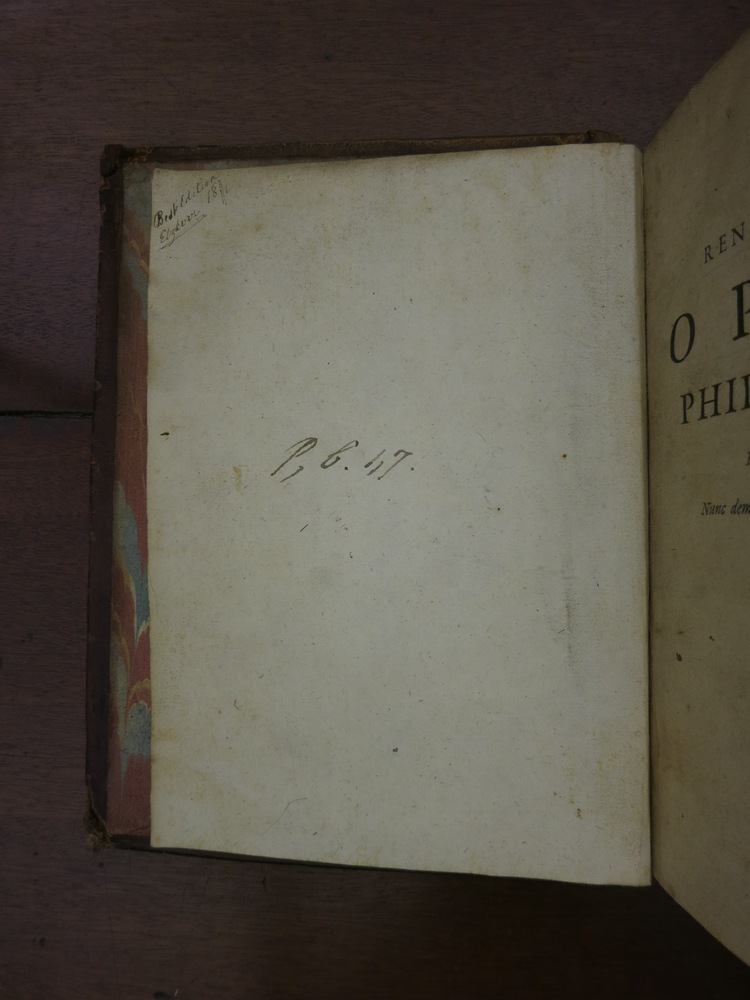 Best Edition
Elzevir
P, 6. 47.
REN
O P
PHIL
Nunc dem